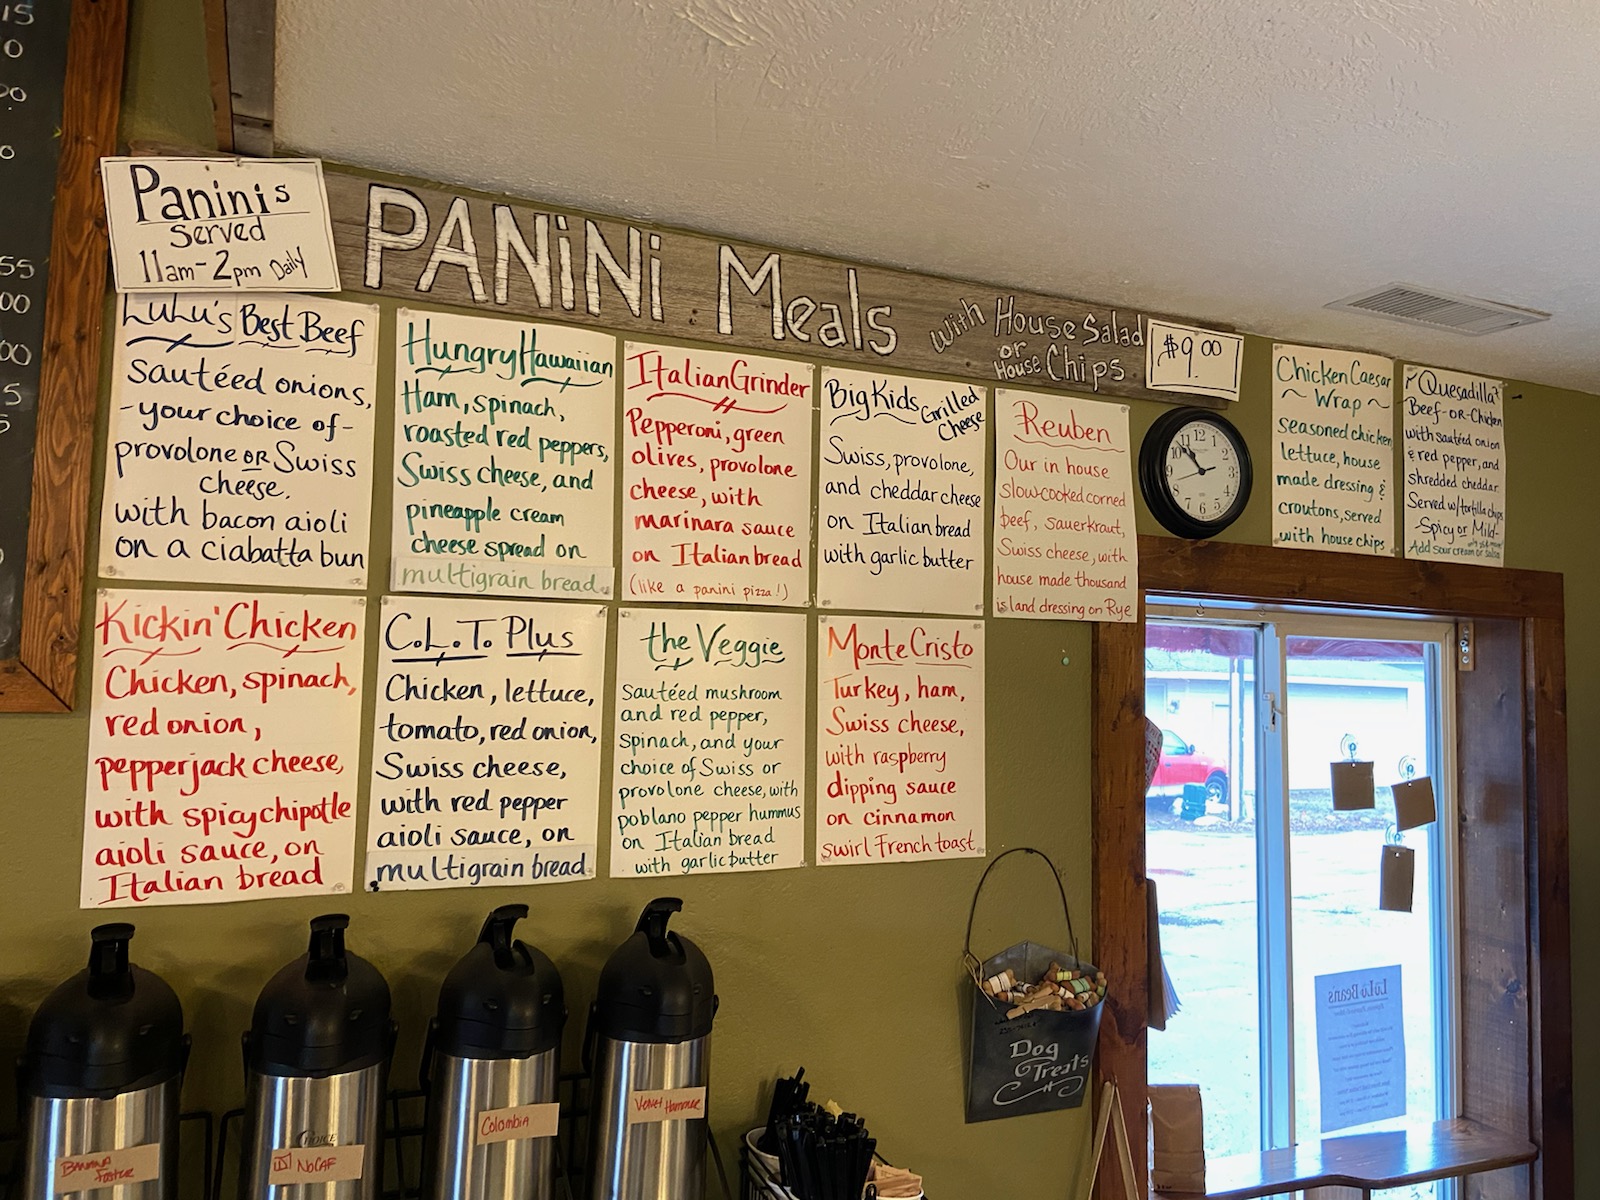 15
0
55
00
00
5
5
Paninis
Served
11am-2pm Daily
PANiNi Meals
with House Salad
or
House Chips
$9.00
LuLu's Best Beef
sautéed onions,
-your choice of-
provolone OR Swiss
cheese.
with bacon aioli
on a ciabatta bun
Hungry Hawaiian
Ham, spinach,
roasted red peppers,
Swiss cheese, and
pineapple cream
cheese spread on
multigrain bread.
Italian Grinder
Pepperoni, green
olives, provolone
cheese, with
marinara sauce
on Italian bread
(like a panini pizza!)
Big Kids Grilled
Cheese
Swiss, provolone,
and cheddar cheese
on Italian bread
with garlic butter
Reuben
Our in house
slow-cooked corned
beef, sauerkraut,
Swiss cheese, with
house made thousand
island dressing on Rye
12
1
2
3
4
5
6
7
8
9
10
11
Chicken Caesar
~ Wrap ~
seasoned chicken,
lettuce, house
made dressing &
croutons, served
with house chips
~Quesadilla~
Beef-OR-Chicken
with sautéed onion
& red pepper, and
shredded cheddar.
Served w/tortilla chips
-Spicy or Mild-
Add sour cream or salsa
Kickin' Chicken
Chicken, spinach,
red onion,
pepperjack cheese,
with spicy chipotle
aioli sauce, on
Italian bread
C.L.T. Plus
Chicken, lettuce,
tomato, red onion,
Swiss cheese,
with red pepper
aioli sauce, on
multigrain bread.
the Veggie
Sautéed mushroom
and red pepper,
spinach, and your
choice of Swiss or
provolone cheese, with
poblano pepper hummus
on Italian bread
with garlic butter
Monte Cristo
Turkey, ham,
Swiss cheese,
with raspberry
dipping sauce
on cinnamon
swirl French toast
Dog
Treats
LuLu Beans
Banana
Foster
CHOICE
US NoCAF
Colombia
Velvet Hammer